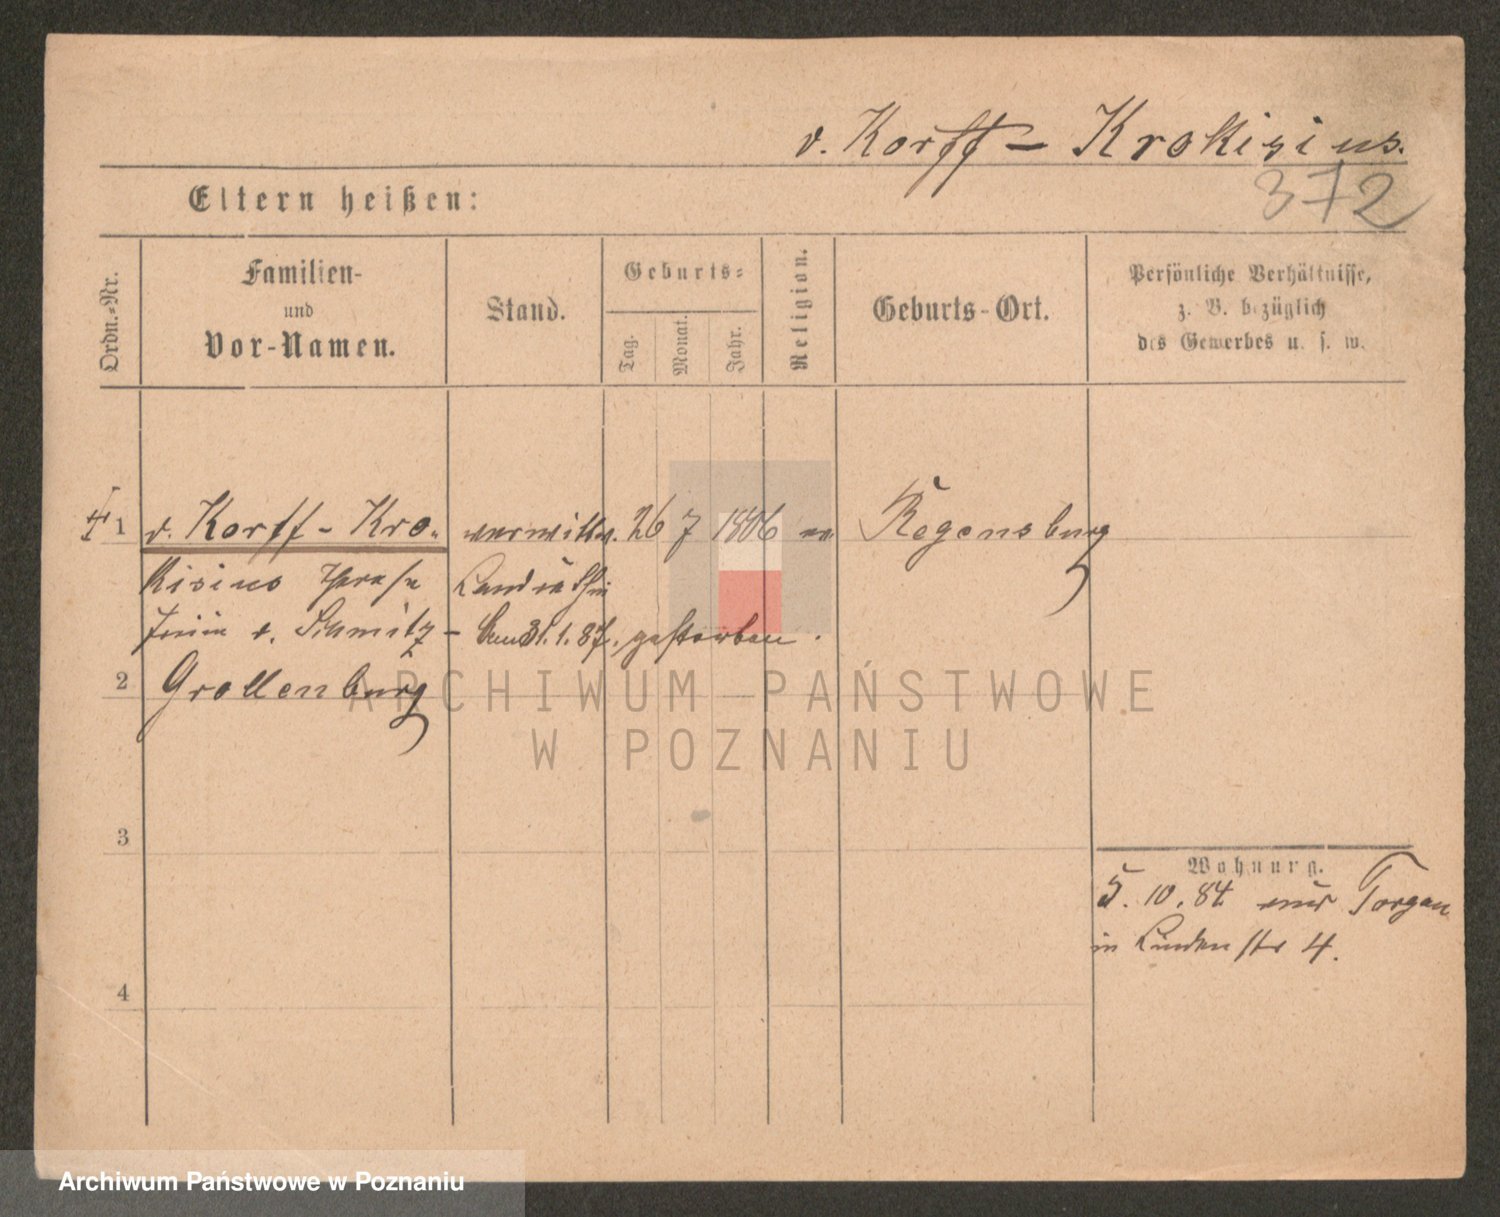 v. Korff - Krokisius.
372
Eltern heißen:
Ordn.-Nr.
Familien-
und
Vor-Namen.
Stand.
Geburts-
Tag.
Monat.
Jahr.
Religion.
Geburts-Ort.
Persönliche Verhältnisse,
z. B. bezüglich
des Gewerbes u. s. w.
1 v. Korff - Kro- verwittw. 26 7 1806 ev Regensburg
kisius Therese Landräthin
v. Schmitz - am 31.1.87. gestorben.
2 Grollenburg
3
4
Wohnung.
5. 10. 84 aus Torgau
in Lindenstr 4.
ARCHIWUM PAŃSTWOWE
W POZNANIU
Archiwum Państwowe w Poznaniu